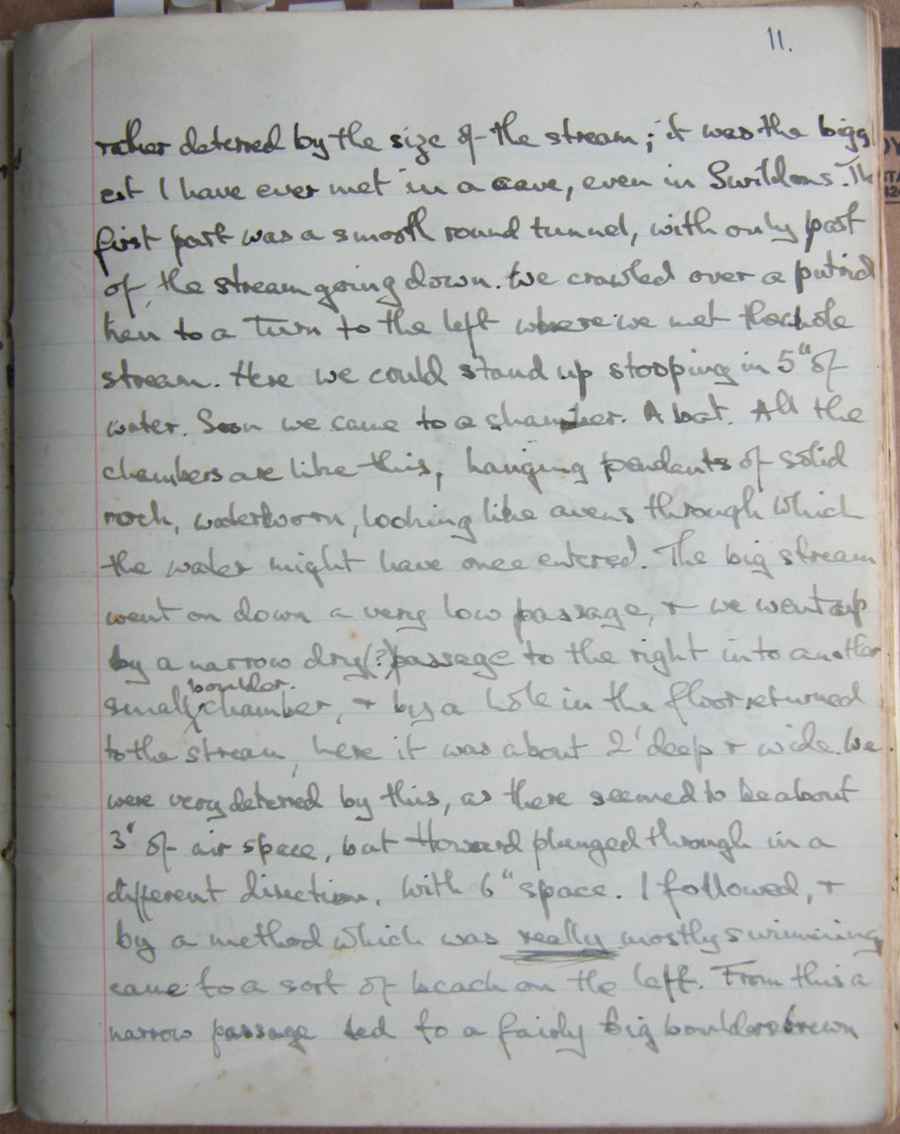 11.
rather deterred by the size of the stream; it was the bigg
est I have ever met in a cave, even in Swildons. The
first part was a smooth round tunnel, with only part
of the stream going down. We crawled over a putrid
hen to a turn to the left where we met the whole
stream. Here we could stand up stooping in 5" of
water. Soon we came to a chamber. A bat. All the
chambers are like this, hanging pendants of solid
rock, waterworn, looking like avens through which
the water might have once entered. The big stream
went on down a very low passage, + we went up
by a narrow dry(?) passage to the right into another
boulder.
small chamber, + by a hole in the floor returned
to the stream, here it was about 2' deep + wide. We
were very deterred by this, as there seemed to be about
3" of air space, but Howard plunged through in a
different direction, with 6" space. I followed, +
by a method which was really mostly swimming
came to a sort of beach on the left. From this a
narrow passage led to a fairly big boulderstrewn